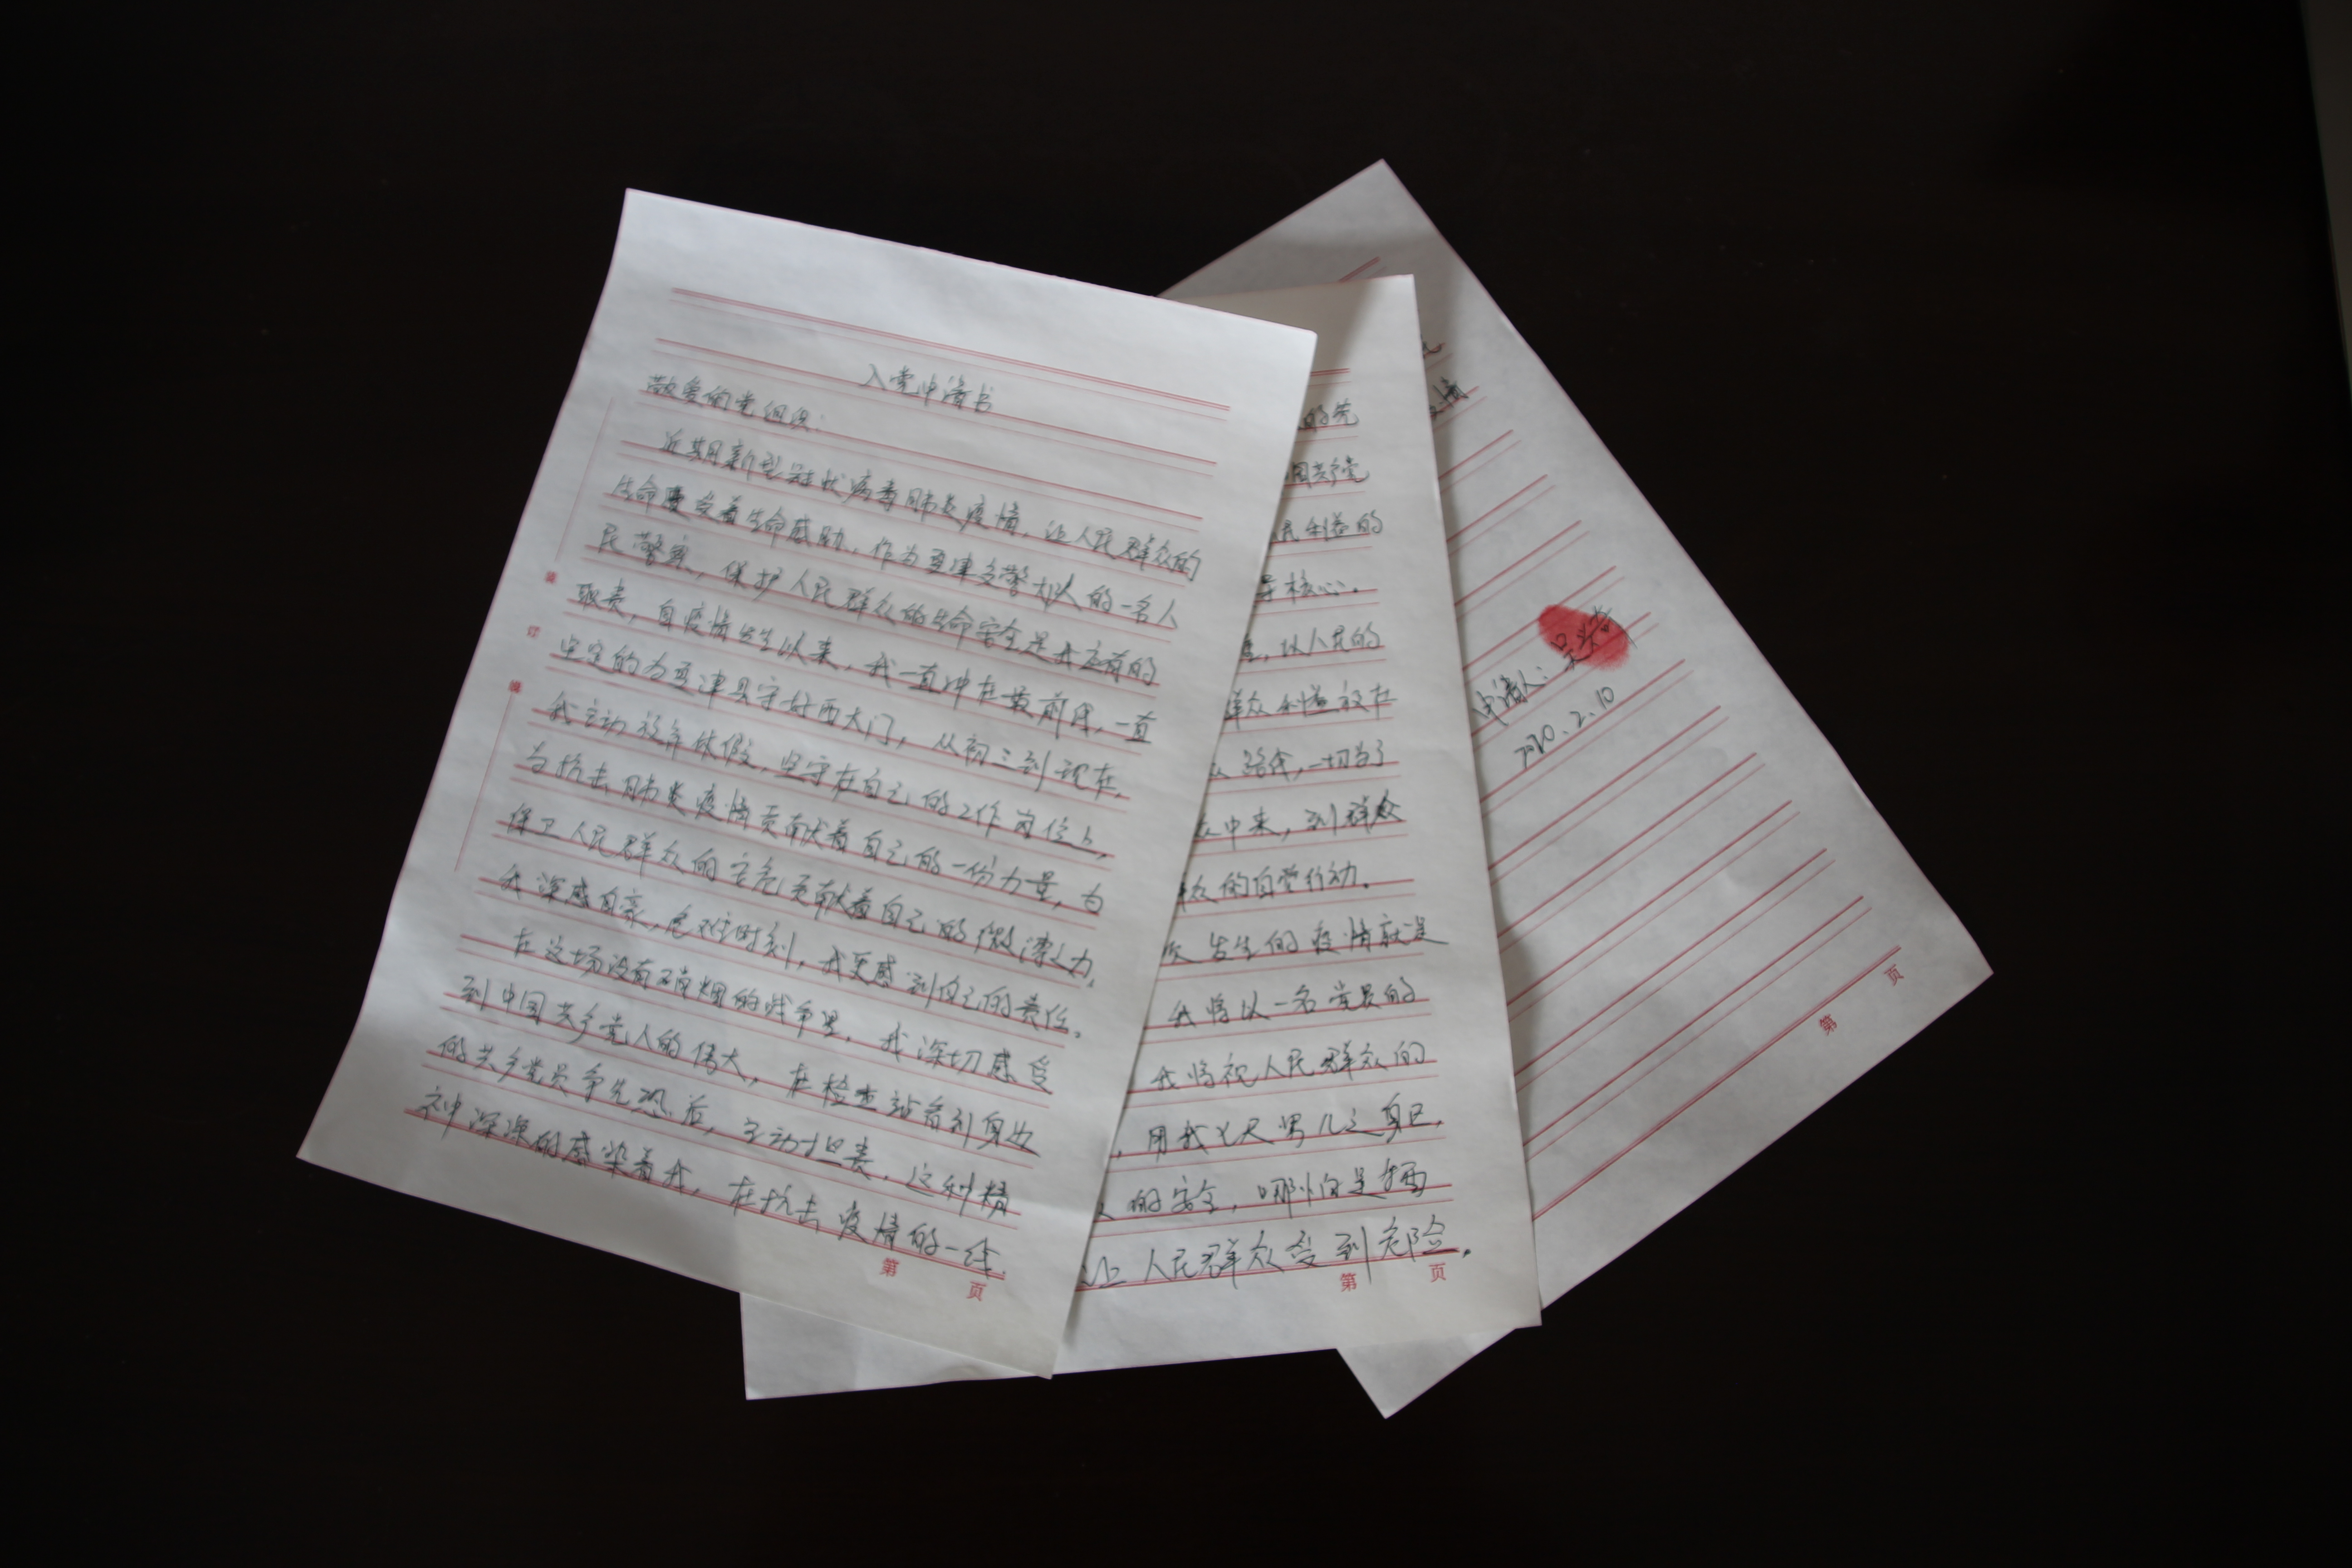 入党申请书
敬爱的党组织:
近期新型冠状病毒肺炎疫情,让人民群众的
生命遭受着生命感胁,作为交警大队的一名人
民警察,保护人民群众的生命安全是我应有的
职责,自疫情发生以来,我一直冲在最前用,一直
坚定的为津县守好西大门,从初三到现在,
我主动放弃休假,坚守在自己的工作岗位上,
为抗击肺炎疫情贡献着自己的一份力量,为
保卫人民群众的安危贡献着自己的微薄之力,
我深感自豪,危难时刻,我更感到自己的责任。
在这场没有硝烟的战争里,我深切感受
到中国共产党人的伟大,在检查站看到身边
的共产党员争先恐后,主动担责,这种精
神深深的感染着我,在抗击疫情的一线,
第 页
的先
国共产党
民利益的
导核心。
,以人民的
群众利益放在
路线,一切为了
众中来,到群众
群众的自觉行动。
次发生的疫情就是
我将以一名党员的
我将视人民群众的
,用我七尺男儿之身,
的安全,哪怕是牺
让人民群众受到危险。
第 页
情
申请人:
2020.2.10
第 页
装
订
线